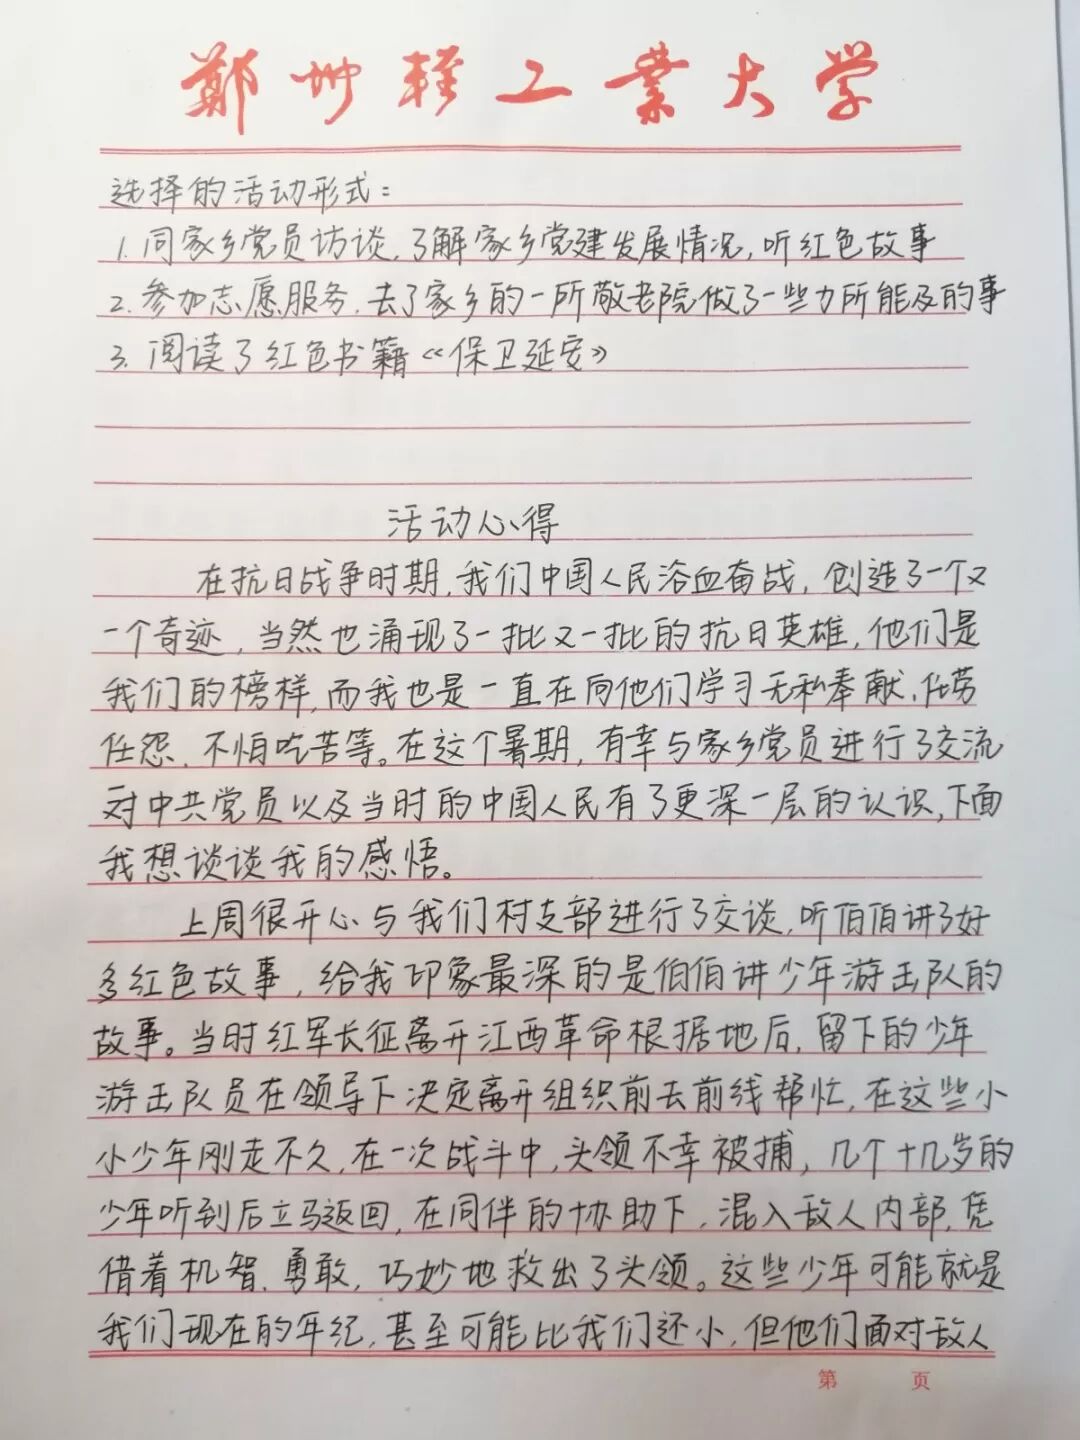 郑州轻工业大学
选择的活动形式：
1. 同家乡党员访谈，了解家乡党建发展情况，听红色故事
2. 参加志愿服务，去了家乡的一所敬老院做了一些力所能及的事
3. 阅读了红色书籍《保卫延安》
活动心得
在抗日战争时期，我们中国人民浴血奋战，创造了一个又
一个奇迹，当然也涌现了一批又一批的抗日英雄，他们是
我们的榜样，而我也是一直在向他们学习无私奉献、任劳
任怨、不怕吃苦等。在这个暑期，有幸与家乡党员进行了交流
对中共党员以及当时的中国人民有了更深一层的认识，下面
我想谈谈我的感悟。
上周很开心与我们村支部进行了交谈，听伯伯讲了好
多红色故事，给我印象最深的是伯伯讲少年游击队的
故事。当时红军长征离开江西革命根据地后，留下的少年
游击队员在领导下决定离开组织前去前线帮忙，在这些小
小少年刚走不久，在一次战斗中，头领不幸被捕，几个十几岁的
少年听到后立马返回，在同伴的协助下，混入敌人内部，凭
借着机智、勇敢，巧妙地救出了头领。这些少年可能就是
我们现在的年纪，甚至可能比我们还小，但他们面对敌人
第 页